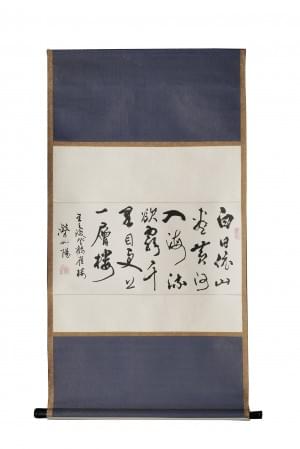 白日依山
盡黃河
入海流
欲窮千
里目更上
一層樓
王之渙登鸛雀樓